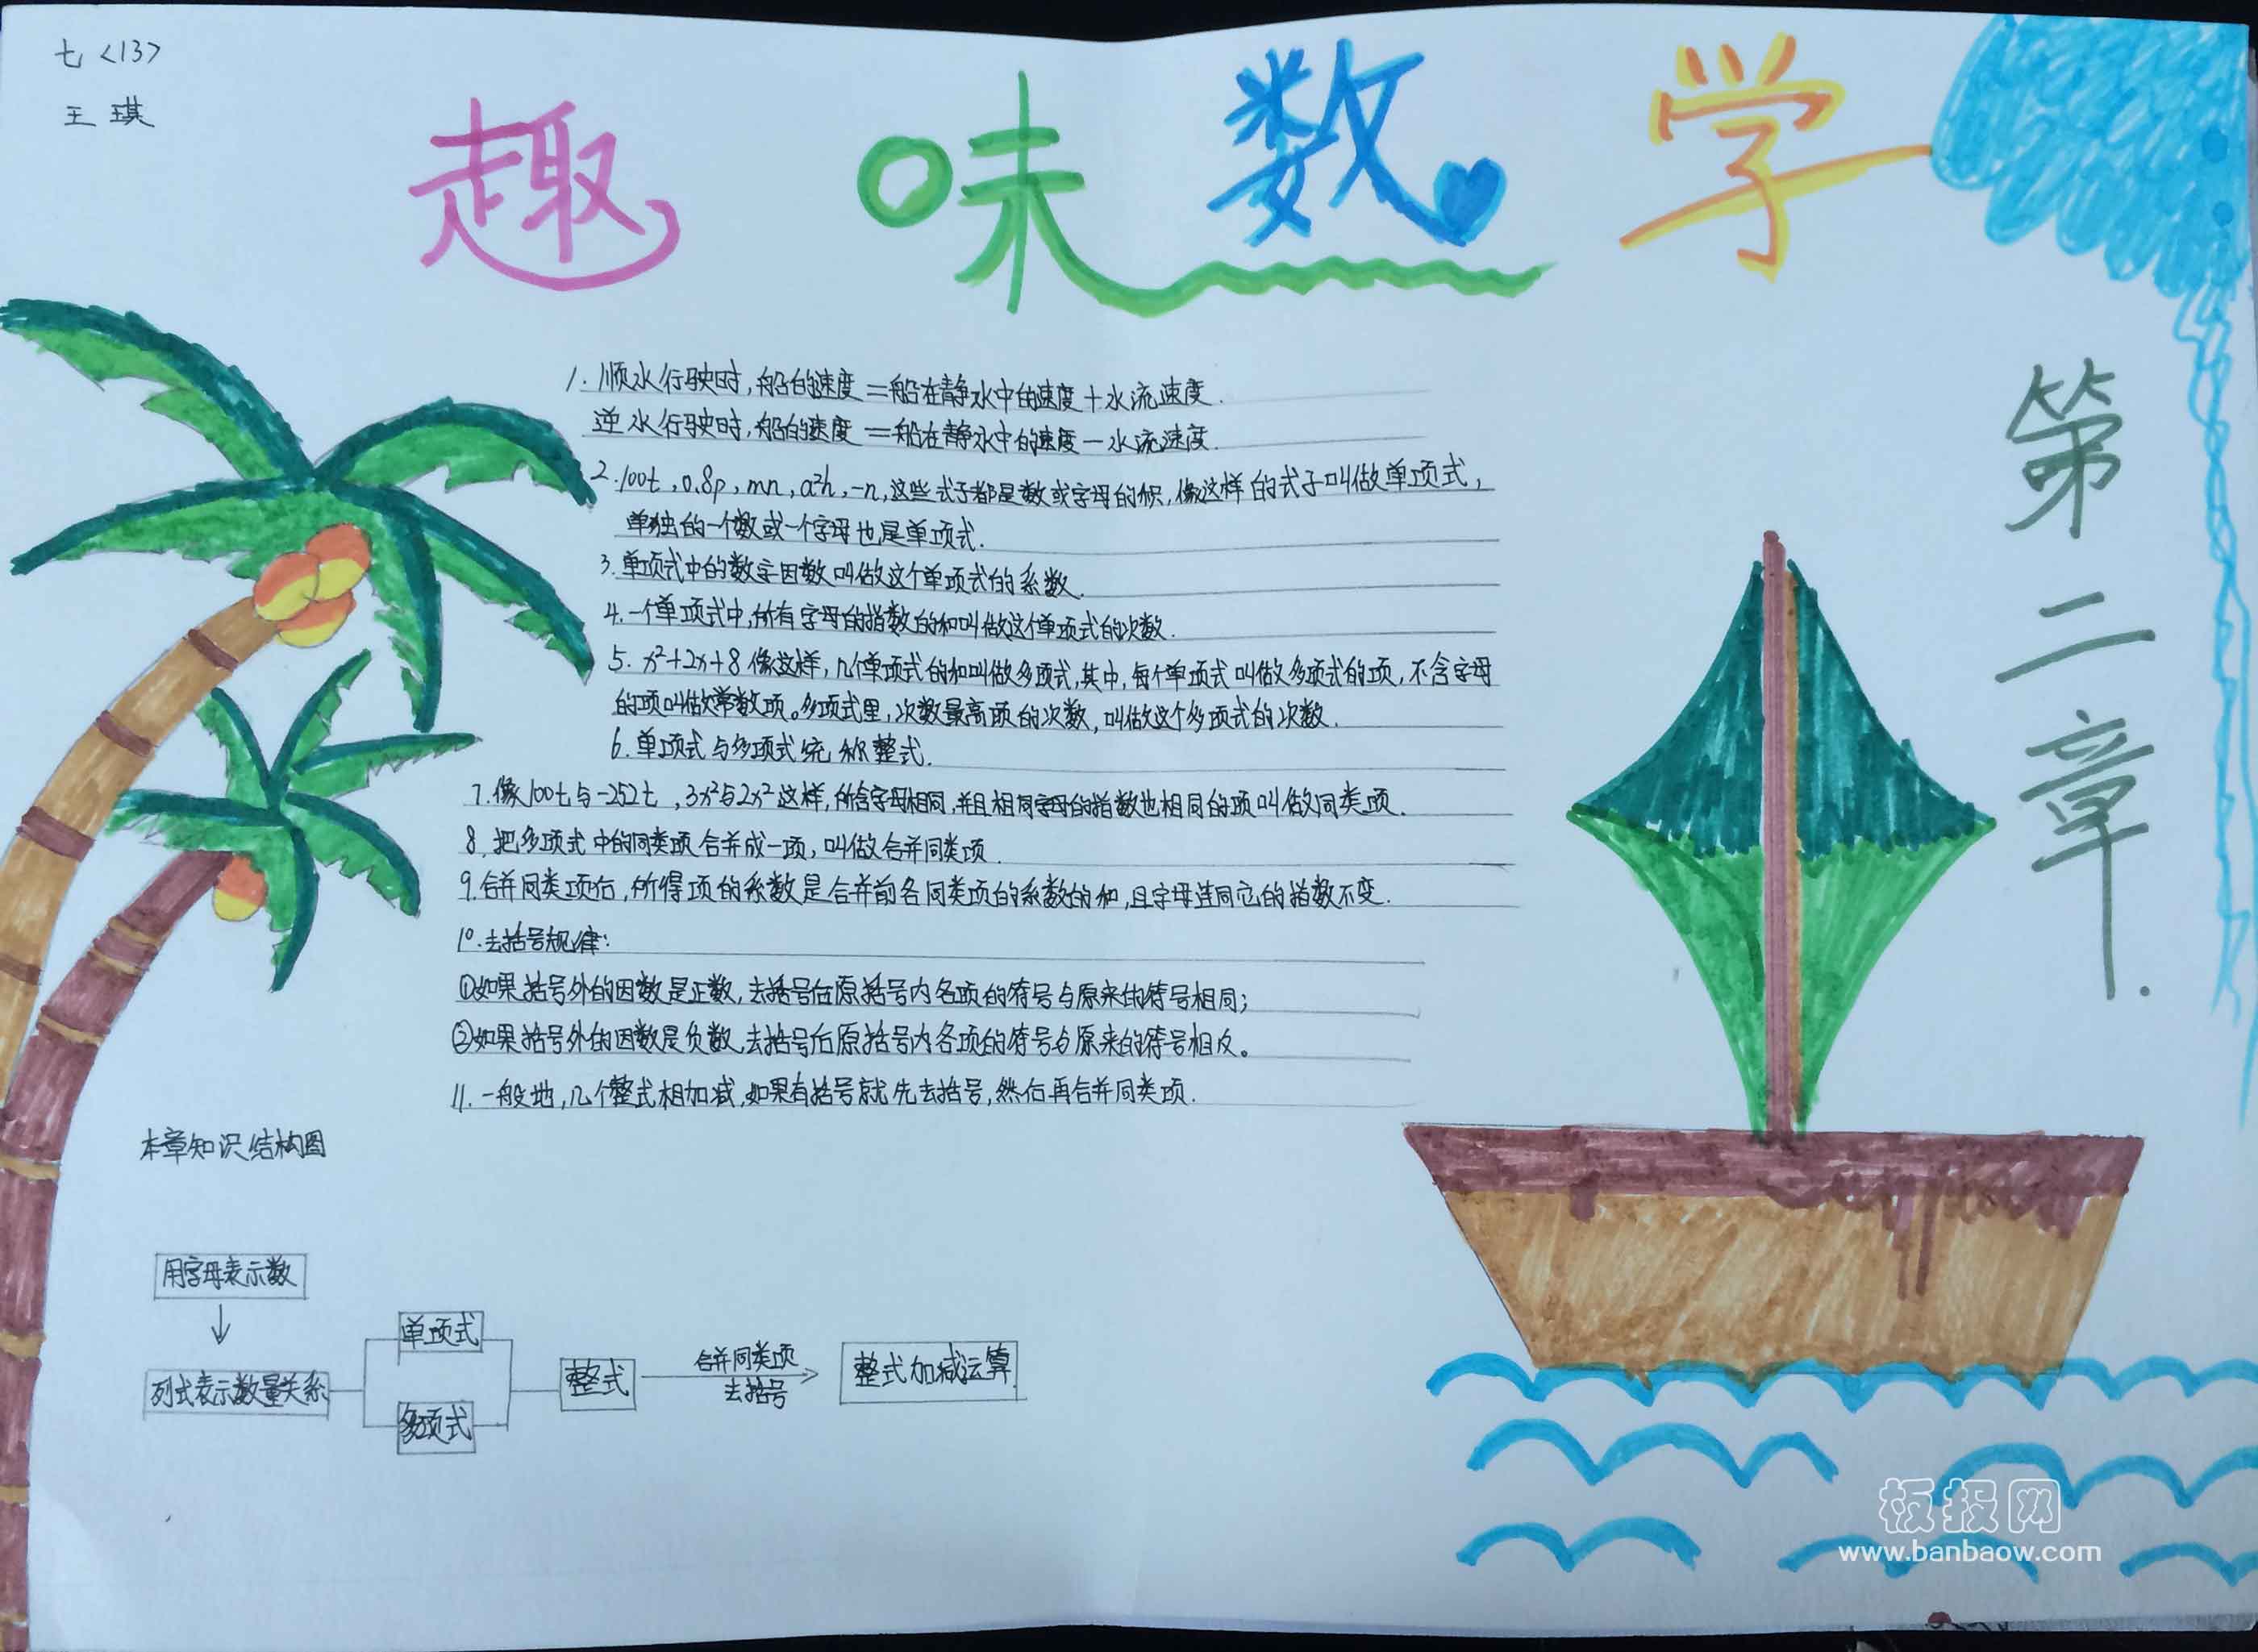 七<13>
王琪
趣味数学
第二章.
1.顺水行驶时,船的速度=船在静水中的速度+水流速度.
逆水行驶时,船的速度=船在静水中的速度-水流速度.
2.100t,0.8p,mn,a²h,-n,这些式子都是数或字母的积,像这样的式子叫做单项式,
单独的一个数或一个字母也是单项式.
3.单项式中的数字因数叫做这个单项式的系数.
4.一个单项式中,所有字母的指数的和叫做这个单项式的次数.
5.x²+2x+8像这样,几个单项式的和叫做多项式,其中,每个单项式叫做多项式的项,不含字母
的项叫做常数项。多项式里,次数最高项的次数,叫做这个多项式的次数.
6.单项式与多项式统称整式.
7.像100t与-252t,3x²与2x²这样,所含字母相同,并且相同字母的指数也相同的项叫做同类项.
8.把多项式中的同类项合并成一项,叫做合并同类项.
9.合并同类项后,所得项的系数是合并前各同类项的系数的和,且字母连同它的指数不变.
10.去括号规律:
①如果括号外的因数是正数,去括号后原括号内各项的符号与原来的符号相同;
②如果括号外的因数是负数,去括号后原括号内各项的符号与原来的符号相反。
11.一般地,几个整式相加减,如果有括号就先去括号,然后再合并同类项.
本章知识结构图
用字母表示数
列式表示数量关系
单项式
多项式
整式
合并同类项
去括号
整式加减运算
板报网
www.banbaow.com